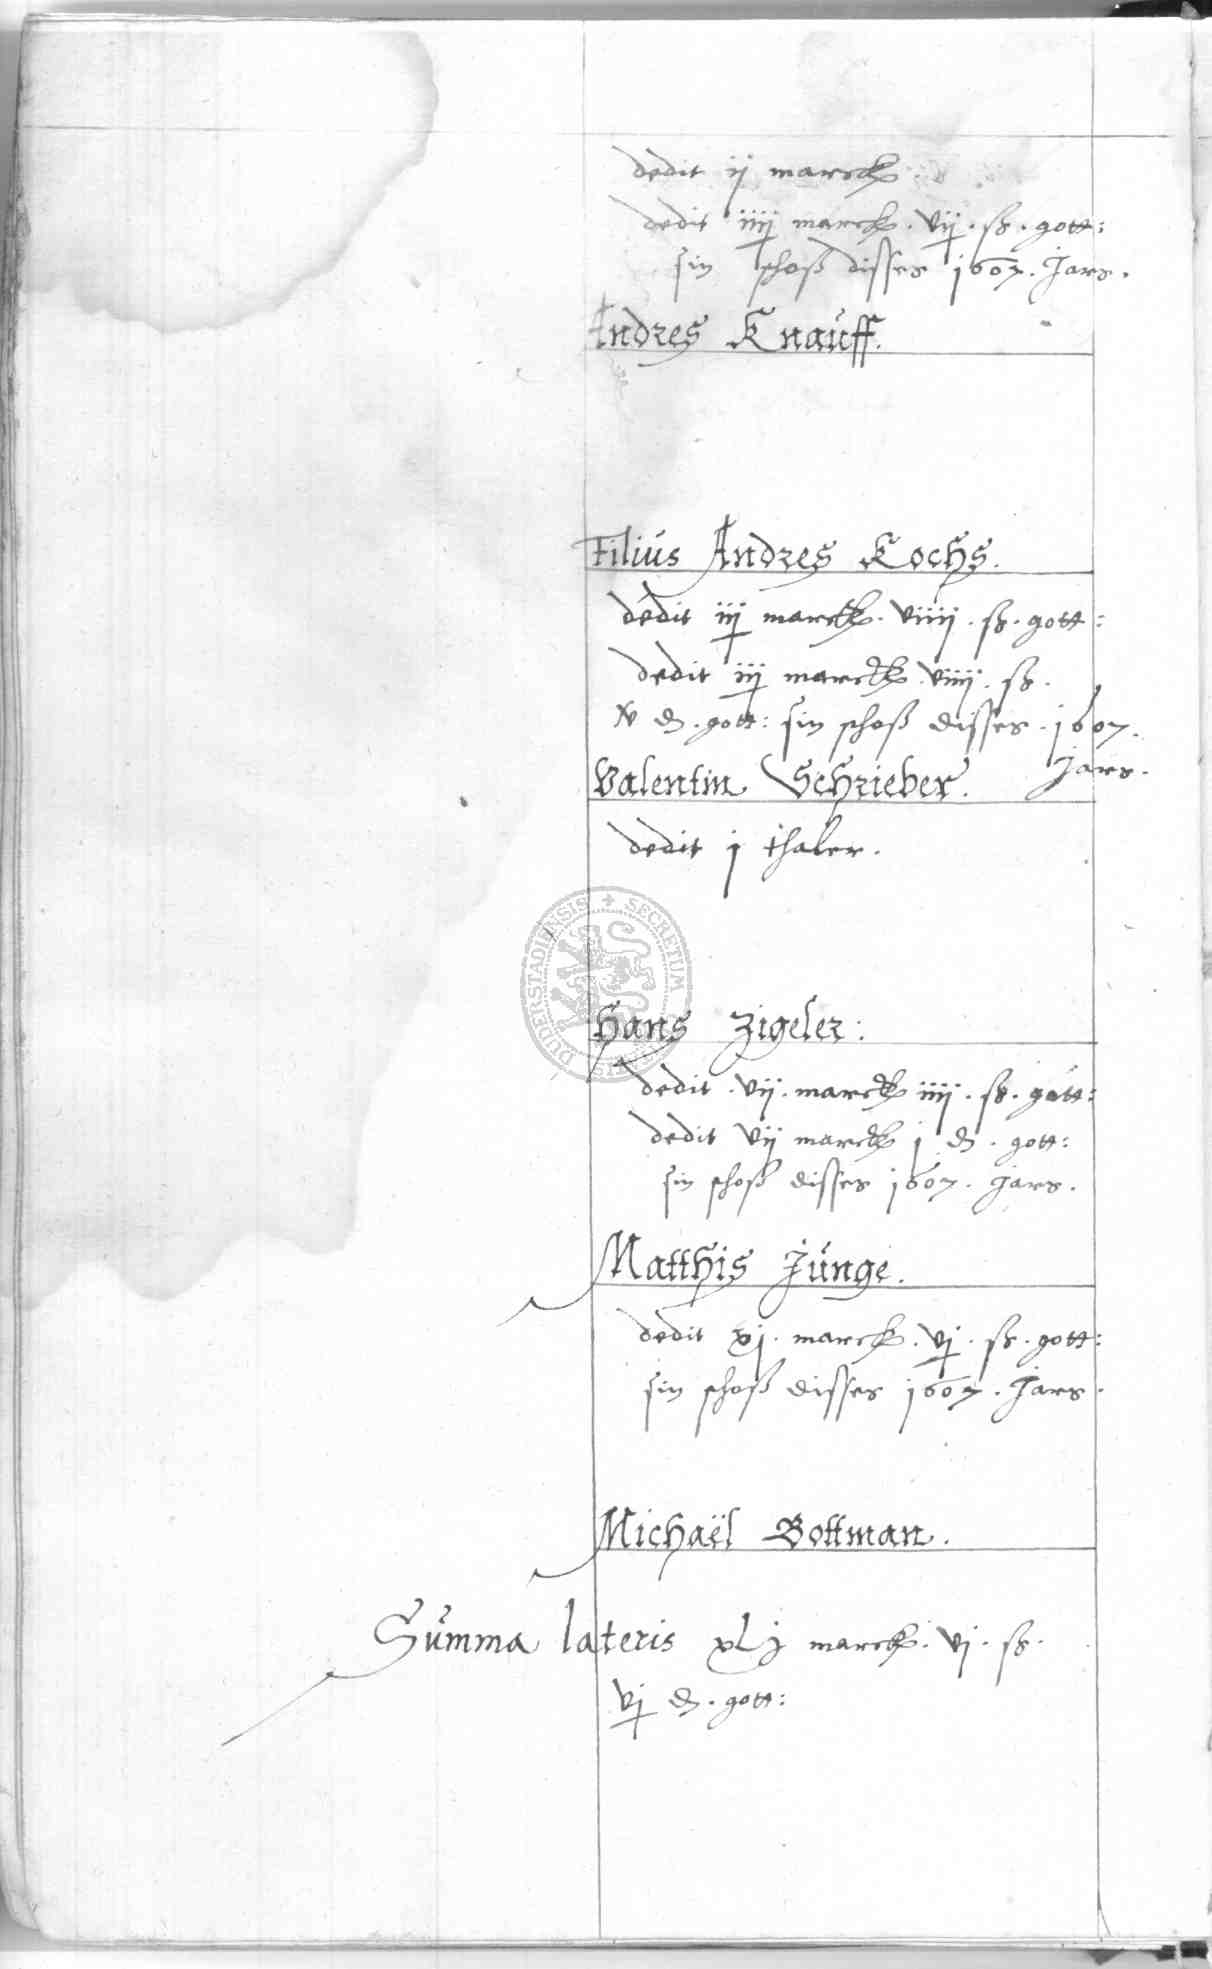 dedit ij marck.
dedit iiij marck. vij. ß. gott:
sin schoß disses 1607. Jars.
Andres Knauff.
Filius Andres Kochs.
dedit iij marck. viiij. ß. gott:
dedit iij marck. viiij. ß.
v d. gott: sin schoß disses. 1607.
Jars.
Valentin Schrieber.
dedit j thaler.
Hans Zigeler:
dedit. vij. marck iiij. ß. gott:
dedit vij marck j d. gott:
sin schoß disses 1607. Jars.
Matthis Junge.
dedit xj. marck. vj. ß. gott:
sin schoß disses 1607. Jars.
Michaël Bottman.
Summa lateris xLj marck. vj. ß.
vj d. gott:
SECRETUM
DUDERSTADIENSIS